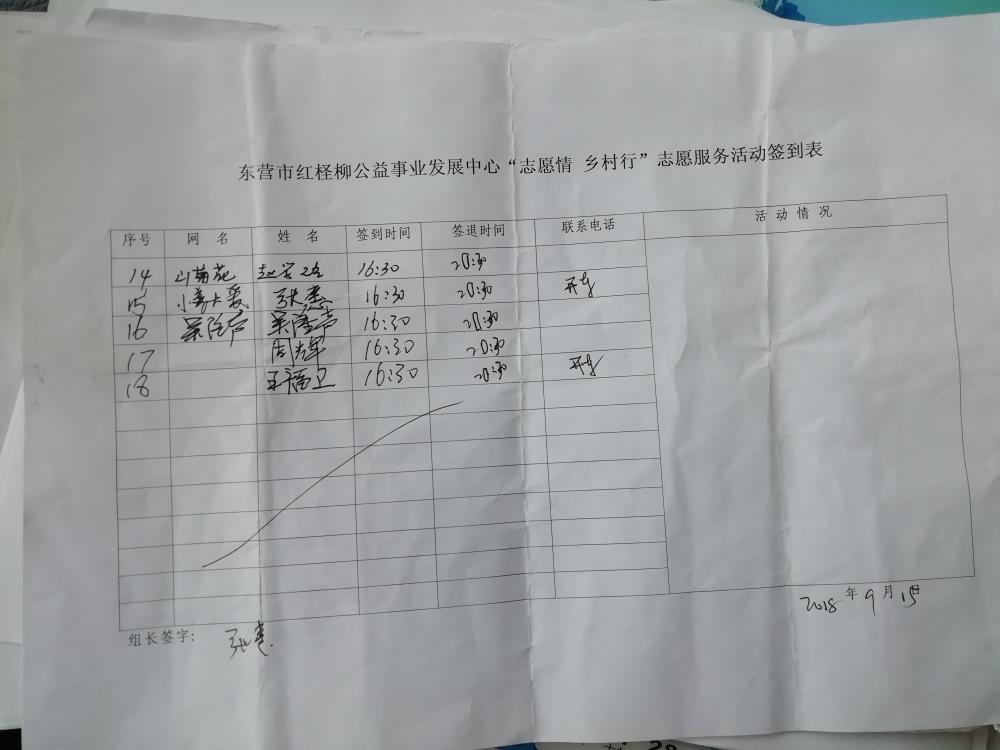 东营市红柽柳公益事业发展中心“志愿情 乡村行”志愿服务活动签到表
序号 网 名 姓 名 签到时间 签退时间 联系电话 活 动 情 况
14 山菊花 16:30 20:30
15 16:30 20:30 开车
16 16:30 20:30
17 周辉 16:30 20:30
18 王福卫 16:30 20:30 开车
组长签字：
2018 年 9 月 15日